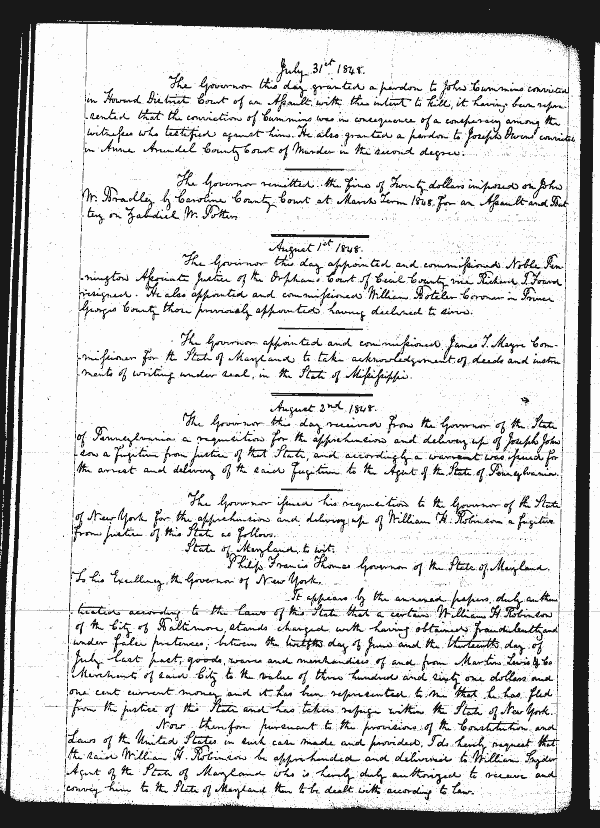 July 31st 1848.
The Governor this day granted a pardon to John Cummins convicted
in Howard District Court of an Assault with the intent to kill, it having been repre-
sented that the conviction of Cummins was in consequence of a conspiracy among the
witnesses who testified against him. He also granted a pardon to Joseph Owens convicted
in Anne Arundel County Court of Murder in the second degree.
The Governor remitted the fine of Twenty dollars imposed on John
W. Bradley by Caroline County Court at March Term 1848 for an Assault and Bat
tery on Zabdiel W. Potter
August 1st 1848.
The Governor this day appointed and commissioned Noble Pen
nington Associate Justice of the Orphans Court of Cecil County vice Richard T. Foard
resigned. He also appointed and commissioned William Boteler Coroner in Prince
Georges County those previously appointed having declined to serve.
The Governor appointed and commissioned James S. Com-
missioner for the State of Maryland to take acknowledgement of deeds and instru
ments of writing under seal, in the State of Mississippi.
August 2nd 1848.
The Governor this day received from the Governor of the State
of Pennsylvania a requisition for the apprehension and delivery up of Joseph John
son a fugitive from justice of that State, and accordingly a warrant was issued for
the arrest and delivery of the said fugitive to the Agent of the State of Pennsylvania.
The Governor issued his requisition to the Governor of the State
of New York for the apprehension and delivery up of William H. Robinson a fugitive
from justice of this State as follows.
State of Maryland, to wit.
Philip Francis Thomas Governor of the State of Maryland.
To his Excellency, the Governor of New York.
It appears by the annexed papers, duly authen
ticated according to the laws of this State that a certain William H. Robinson
of the City of Baltimore, stands charged with having obtained fraudulently and
under false pretences, between the twelfth day of June and the thirteenth day of
July last past, goods, wares and merchandises of and from Martin Lewis & Co
Merchants of said City to the value of three hundred and sixty one dollars and
one cent current money and it has been represented to me that he has fled
from the justice of this State and has taken refuge within the State of New York.
Now therefore pursuant to the provisions of the Constitution and
Laws of the United States in such case made and provided, I do hereby request that
the said William H. Robinson be apprehended and delivered to William Snyder
Agent of the State of Maryland who is hereby duly authorized to receive and
convey him to the State of Maryland then to be dealt with according to law.